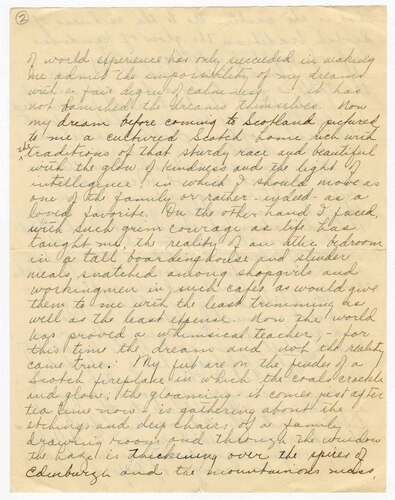 2
of world experience has only succeeded in making
me admit the impossibility of my dreams
with a fair degree of calmness, - it has
not banished the dreams themselves. Now
my dream before coming to Scotland pictured
to me a cultured Scotch home rich with
the traditions of that sturdy race and beautiful
with the glow of kindness and the light of
intelligence in which I should move as
one of the family or rather indeed as a
loved favorite. On the other hand I faced,
with such grim courage as life has
taught me, the reality of an attic bedroom
in a tall boardinghouse and slender
meals, snatched among shopgirls and
workingmen in such cafés as would give
them to me with the least trimming as
well as the least expense. Now the world
has proved a whimsical teacher, - for
this time the dream and not the reality
came true. My feet are on the fender of a
Scotch fireplace in which the coals crackle
and glow; the gloaming - it comes just after
tea time now - is gathering about the
etchings and deep chairs of a family
drawing room and through the window
the haze is thickening over the spires of
Edinburgh and the mountainous mass,